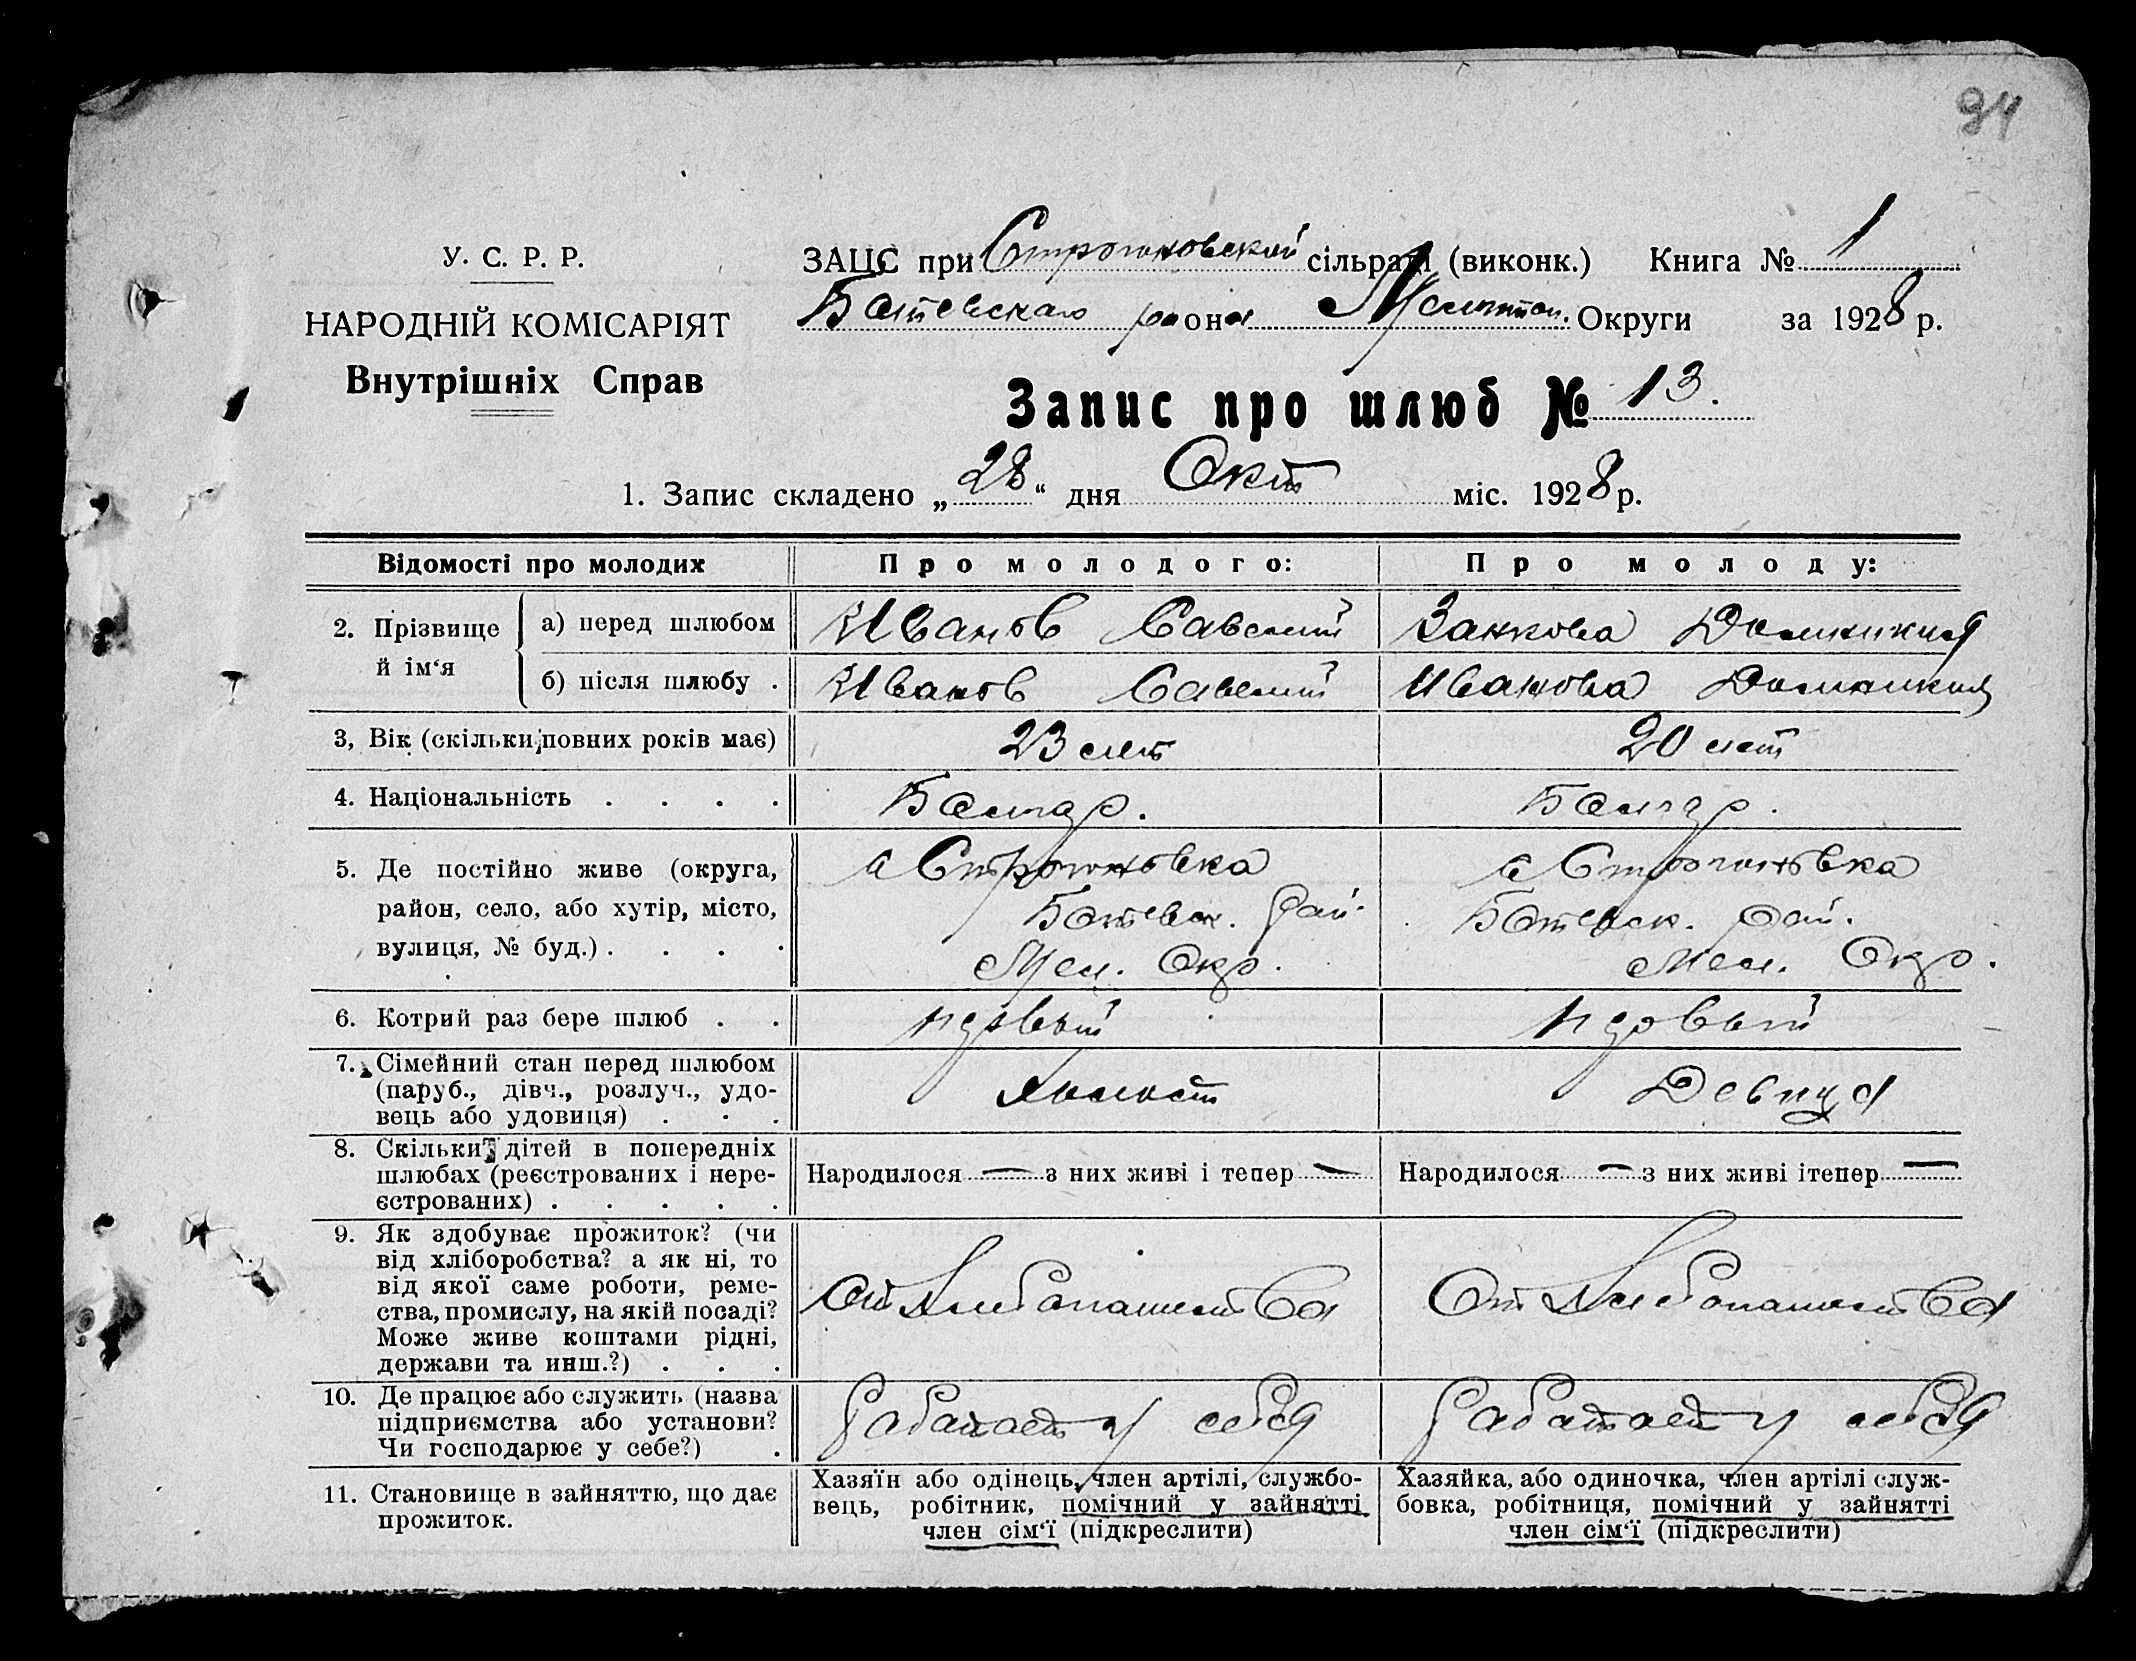 94
У. С. Р. Р.
НАРОДНІЙ КОМІСАРІЯТ
Внутрішніх Справ
ЗАЦС при Строгоновской сільраді (виконк.) Книга № 1
Ботевскаго району Мелитоп. Округи за 1928 р.
Запис про шлюб № 13.
1. Запис складено „28“ дня Окт міс. 1928 р.
Відомості про молодих
Про молодого:
Про молоду:
2. Прізвище й ім‘я
а) перед шлюбом
Иванов Савелий
Занкова Домникия
б) після шлюбу .
Иванов Савелий
Иванова Домникия
3, Вік (скільки повних років має)
23 лет
20 лет
4. Національність . . . .
Болгар.
Болгар.
5. Де постійно живе (округа,
район, село, або хутір, місто,
вулиця, № буд.) . . . .
с Строгоновка
Ботевск. Рай.
Мел. Окр.
с Строгоновка
Ботевск. Рай.
Мел. Окр.
6. Котрий раз бере шлюб . .
первый
первый
7. Сімейний стан перед шлюбом
(паруб., дівч., розлуч., удо-
вець або удовиця) . . .
Холост
Девица
8. Скільки дітей в попередніх
шлюбах (реєстрованих і нере-
єстрованих) . . . . .
Народилося — з них живі і тепер —
Народилося — з них живі ітепер —
9. Як здобуває прожиток? (чи
від хліборобства? а як ні, то
від якої саме роботи, реме-
ства, промислу, на якій посаді?
Може живе коштами рідні,
держави та инш.?) . . .
От Хлебопашества
От Хлебопашества
10. Де працює або служить (назва
підприємства або установи?
Чи господарює у себе?) .
Работает у себя
Работает у себя
11. Становище в зайняттю, що дає
прожиток.
Хазяїн або одінець, член артілі, службо-
вець, робітник, помічний у зайнятті
член сім‘ї (підкреслити)
Хазяйка, або одиночка, член артілі служ-
бовка, робітниця, помічний у зайнятті
член сім‘ї (підкреслити)